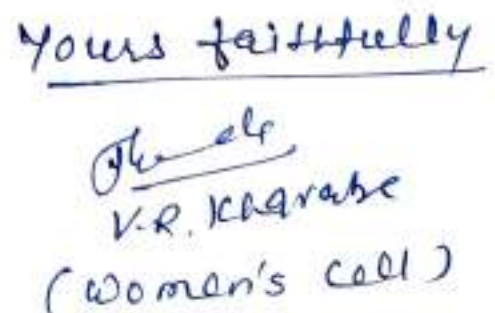 Yours faithfully
V.R. Kharabe
(Women's cell)